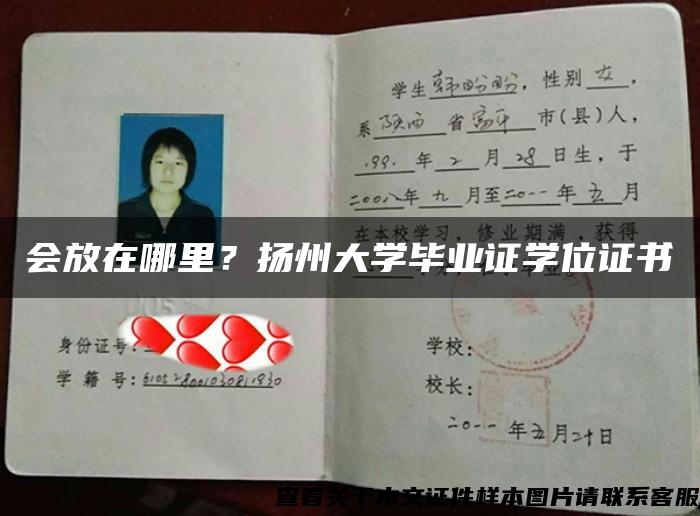 学生韩盼盼，性别女，
系陕西省富平市(县)人，
1991年2月28日生，于
二00八年九月至二0一一年五月
在本校学习，修业期满，获得
会放在哪里？扬州大学毕业证学位证书
身份证号：
学籍号：610528001030811930
学校：
校长：
二0一一年五月二十日
查看关于本文证件样本图片请联系客服